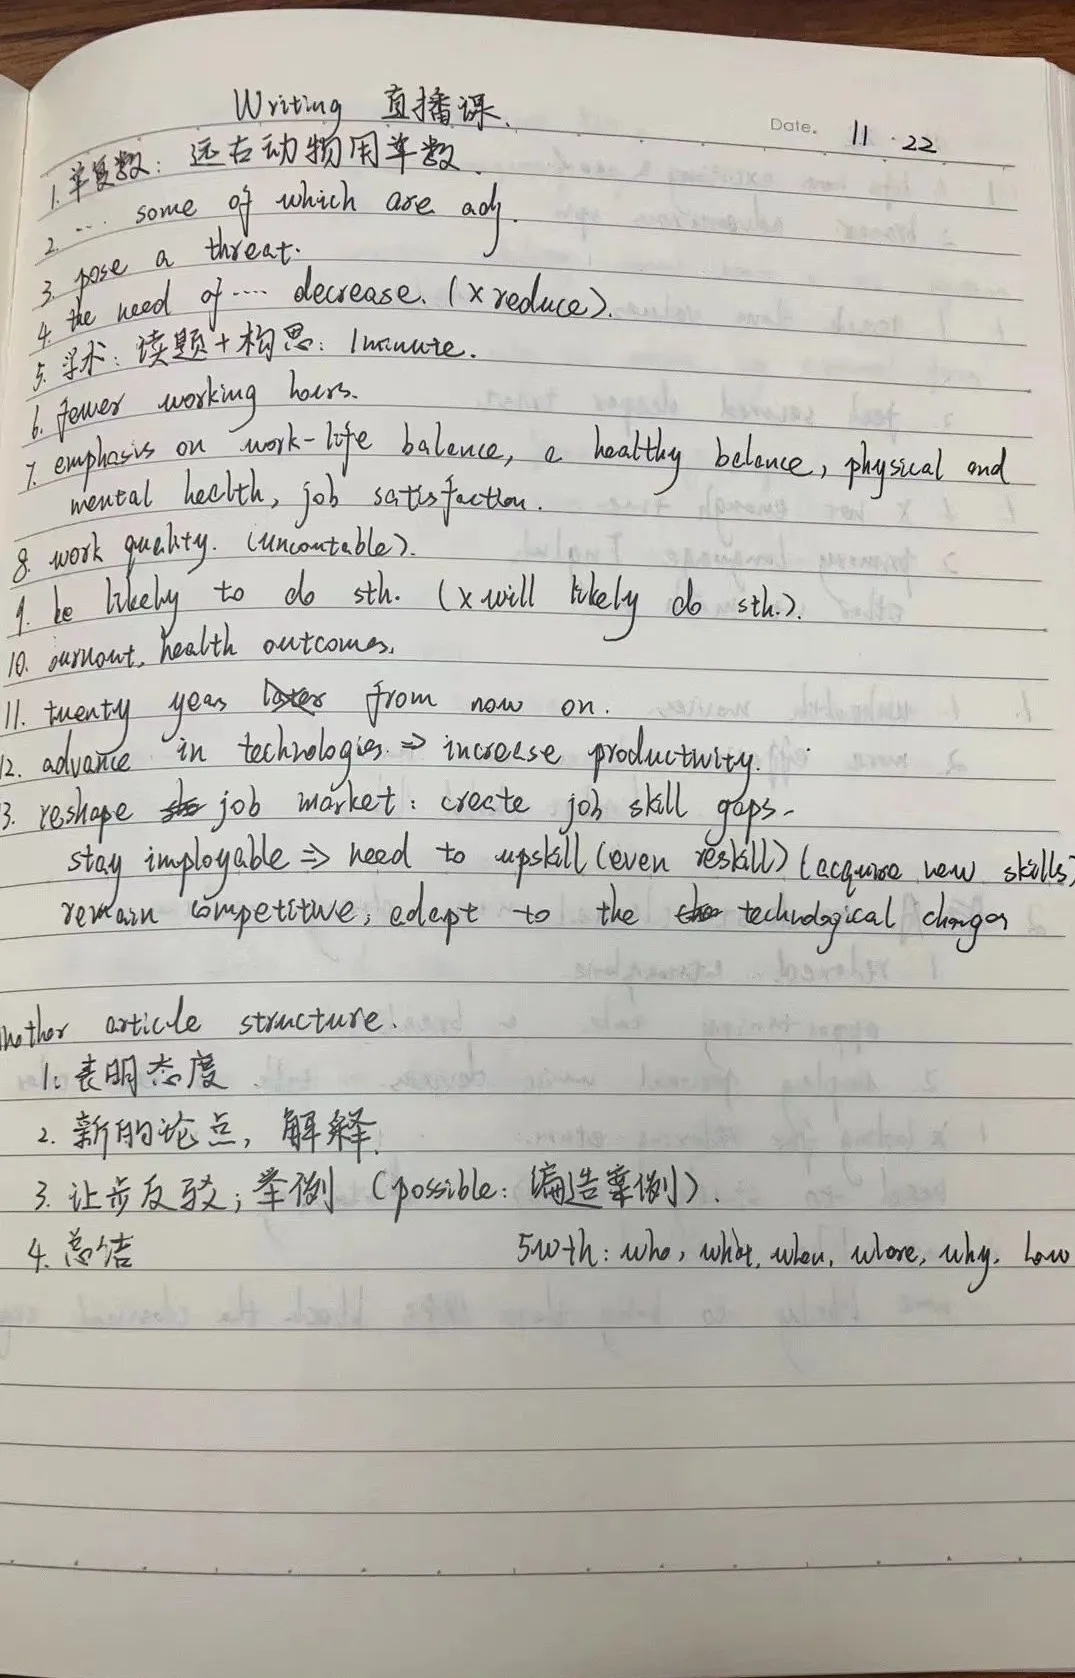 Writing 直播课.
Date. 11.22
1. 单复数: 远古动物用单数.
2. .... some of which are adj.
3. pose a threat.
4. the need of .... decrease. (× reduce).
5. 学术: 读题+构思: 1 minute.
6. fewer working hours.
7. emphasis on work-life balance, a healthy balance, physical and
mental health, job satisfaction.
8. work quality. (uncountable).
9. be likely to do sth. (× will likely do sth.).
10. burnout, health outcomes.
11. twenty years later from now on.
12. advance in technologies. ⇒ increase productivity.
13. reshape job market: create job skill gaps.
stay imployable ⇒ need to upskill (even reskill) (acquire new skills)
remain competitive, adapt to the technological changes
Another article structure.
1. 表明态度
2. 新的论点, 解释.
3. 让步反驳; 举例 (possible: 编造案例).
4. 总结
5w+h: who, what, when, where, why, how